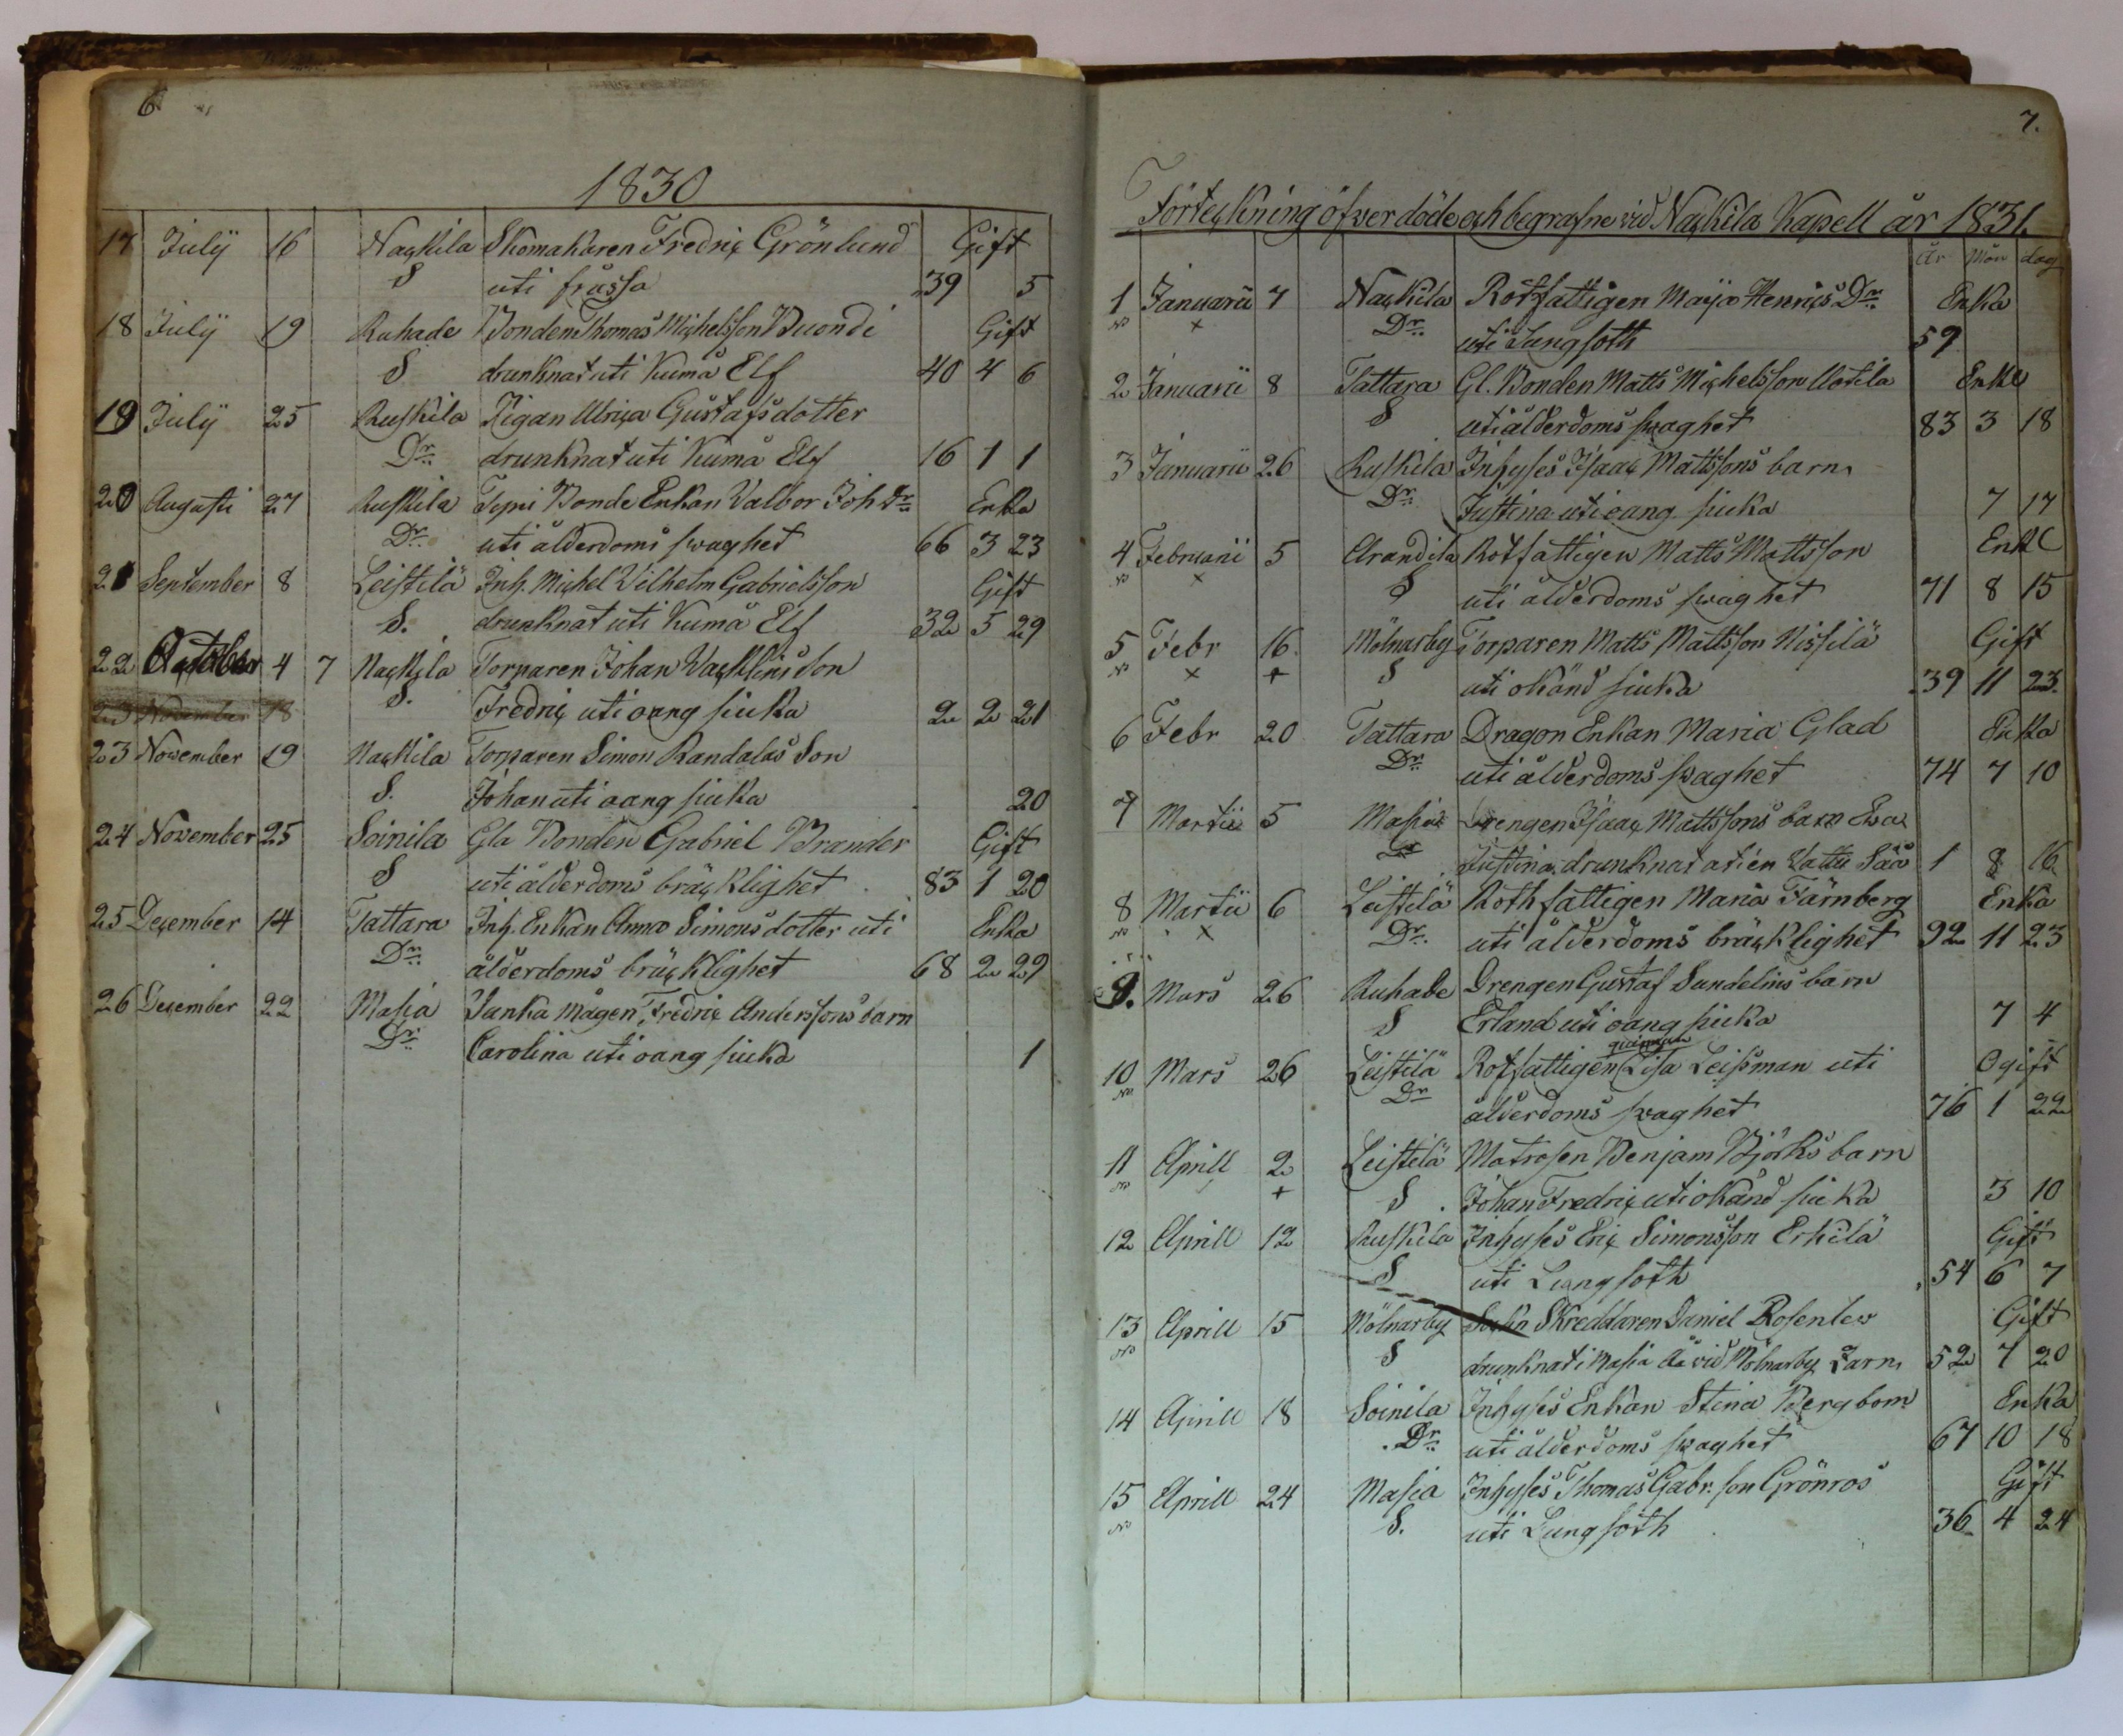 6
1830
17 Julÿ 16 Nackila Skomakaren Fredric Grönlund Gift
S uti frussa 39 5
18 Julÿ 19 Ruhade Bonden Thomas Michelsson Buondi Gift
S drunknat uti Kumå Elf 40 4 6
19 Julÿ 25 Ruskila Pigan Ulrica Gustafsdotter
Dr drunknat uti Kumå Elf 16 1 1
20 Augusti 27 Ruskila Bonde Enkan Valbor Joh Dr Enka
Dr uti ålderdoms swaghet 66 3 23
21 September 8 Leistilä Inh. Michel Vilhelm Gabrielsson Gift
S. drunknat uti Kumå Elf 32 5 29
22 October 4 7 Nackila Torparen Johan Wacklins Son
S. Fredric uti oang siuka 2 2 21
23 November 18
23 November 19 Nackila Torparen Simon Randalas Son
S. Johan uti oang siuka 20
24 November 25 Soinila Gla Bonden Gabriel Brander Gift
S uti ålderdoms bräcklighet 83 1 20
25 December 14 Tattara Inh. Enkan Anna Simonsdotter uti Enka
Dr ålderdoms bräcklighet 68 2 29
26 December 22 Masia Janka mågen Fredric Anderssons barn
Dr Carolina uti oang siuka 1
7.
Förteckning öfwer döde och begrafne vid Nackila Kapell år 1831.
År Mon dag
1 Januarii 7 Nackila Rotfattigen Maija Henrics Dr Enka
No x Dr uti Lungsoth 59
2 Januarii 8 Tattara Gl. Bonden Matts Michelsson Uotila Enkl
S uti ålderdoms swaghet 83 3 18
3 Januarii 26 Ruskila Inhyses Isaac Mattssons barn
Dr Justina uti oang siuka 7 17
4 Februarii 5 Arandila Rotfattigen Matts Mattsson Enkl
No x S uti ålderdoms swaghet 71 8 15
5 Febr 16 Mölnarby Torparen Matts Mattsson Nissilä Gift
No x + S uti okänd siuka 39 11 23
6 Febr 20 Tattara Dragon Enkan Maria Glad Enka
Dr uti ålderdoms swaghet 74 7 10
7 Martii 5 Masia Drengen Isaac Mattssons barn Ewa
Dr Justina drunknat uti en Vattu Såå 1 8 16
8 Martii 6 Leistilä Rothfattigen Maria Färnberg Enka
No x Dr uti ålderdoms bräcklighet 92 11 23
9. Mars 26 Ruhade Drengen Gustaf Sandelins barn
S Erland uti oang siuka 7 4
qvinnan
10 Mars 26 Leistilä Rotfattigen Lisa Leisman uti Ogift
No Dr ålderdoms swaghet 76 1 22
11 Aprill 2 Leistilä Matrosen Benjam Björks barn
No + S Johan Fredric uti okänd siuka 3 10
12 Aprill 12 Ruskila Inhyses Eric Simonsson Erkilä Gift
S uti Lungsoth 54 6 7
13 Aprill 15 Mölnarby Sockn Skreddaren Daniel Rosenlew Gift
No S drunknat i Masia Åå vid Mölnarby 52 7 20
14 Aprill 18 Soinila Inhyses Enkan Stina Bergbom Enka
Dr uti ålderdoms swaghet 67 10 18
15 Aprill 24 Masia Inhyses Thomas Gabr. son Grönros Gift
No S. uti Lungsoth 36 4 24